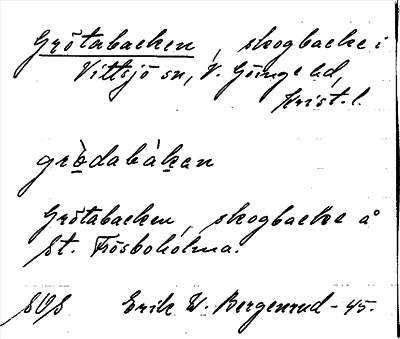 Grötabacken, skogbacke i
Vittsjö sn, V. Göinge hd,
Krist. l.
grö̀dabàkan
Grötabacken, skogbacke å
St. Frösboholma.
SOS Erik W. Bergenrud -45.